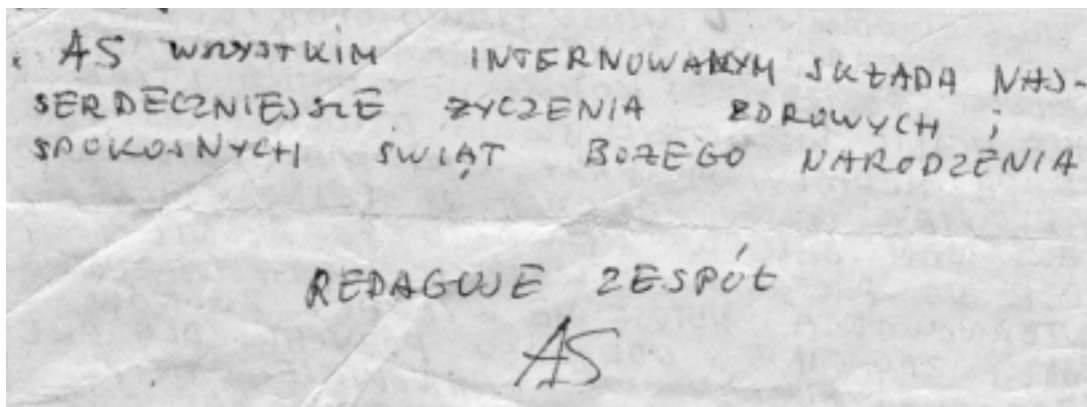 AS WSZYSTKIM INTERNOWANYM SKŁADA NAJ-
SERDECZNIEJSZE ŻYCZENIA ZDROWYCH i
SPOKOJNYCH ŚWIĄT BOŻEGO NARODZENIA
REDAGUJE ZESPÓŁ
AS